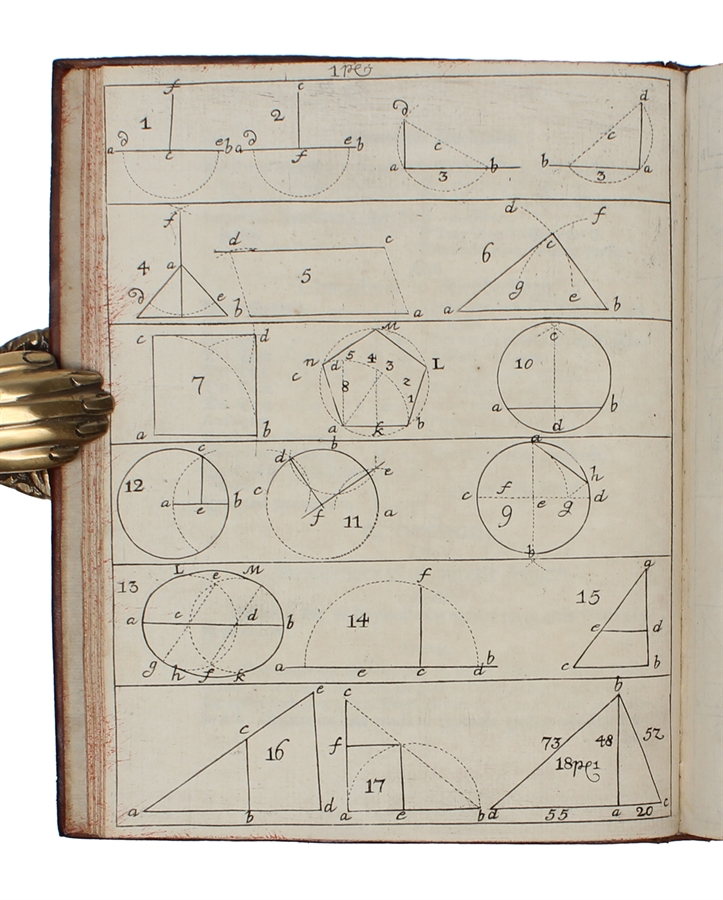 f c d
1 2
c c
a d c e b a d f e b a 3 b b 3 a
f d c d f
4 a 6 c
5
d e b a a g e b
c d n M L c
7 c d 5 4 3 10
8 2 1
a b a k b a b
d
c d b e a h
12 c c f d
a e b f 11 a 9 e g
b
13 L e M f g
a c d b 14 15 e d
g h f k a e c d b c b
e c b
c f 73 48 52
16 17 18
a b d a e b d 55 a 20 c